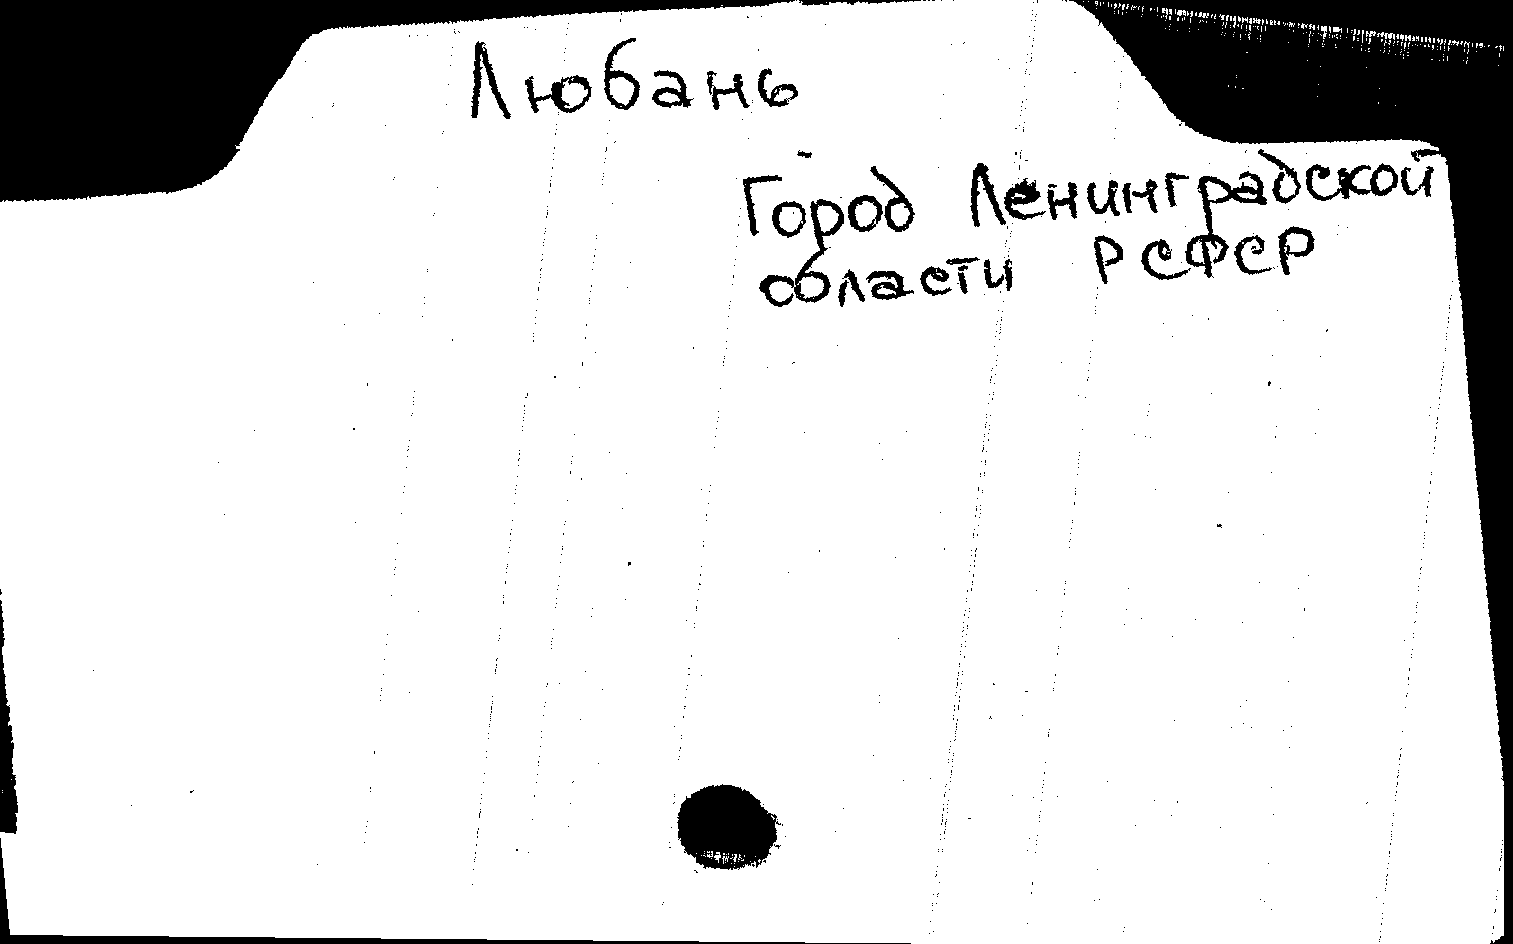 Любань
Город Ленинградской
области РСФСР